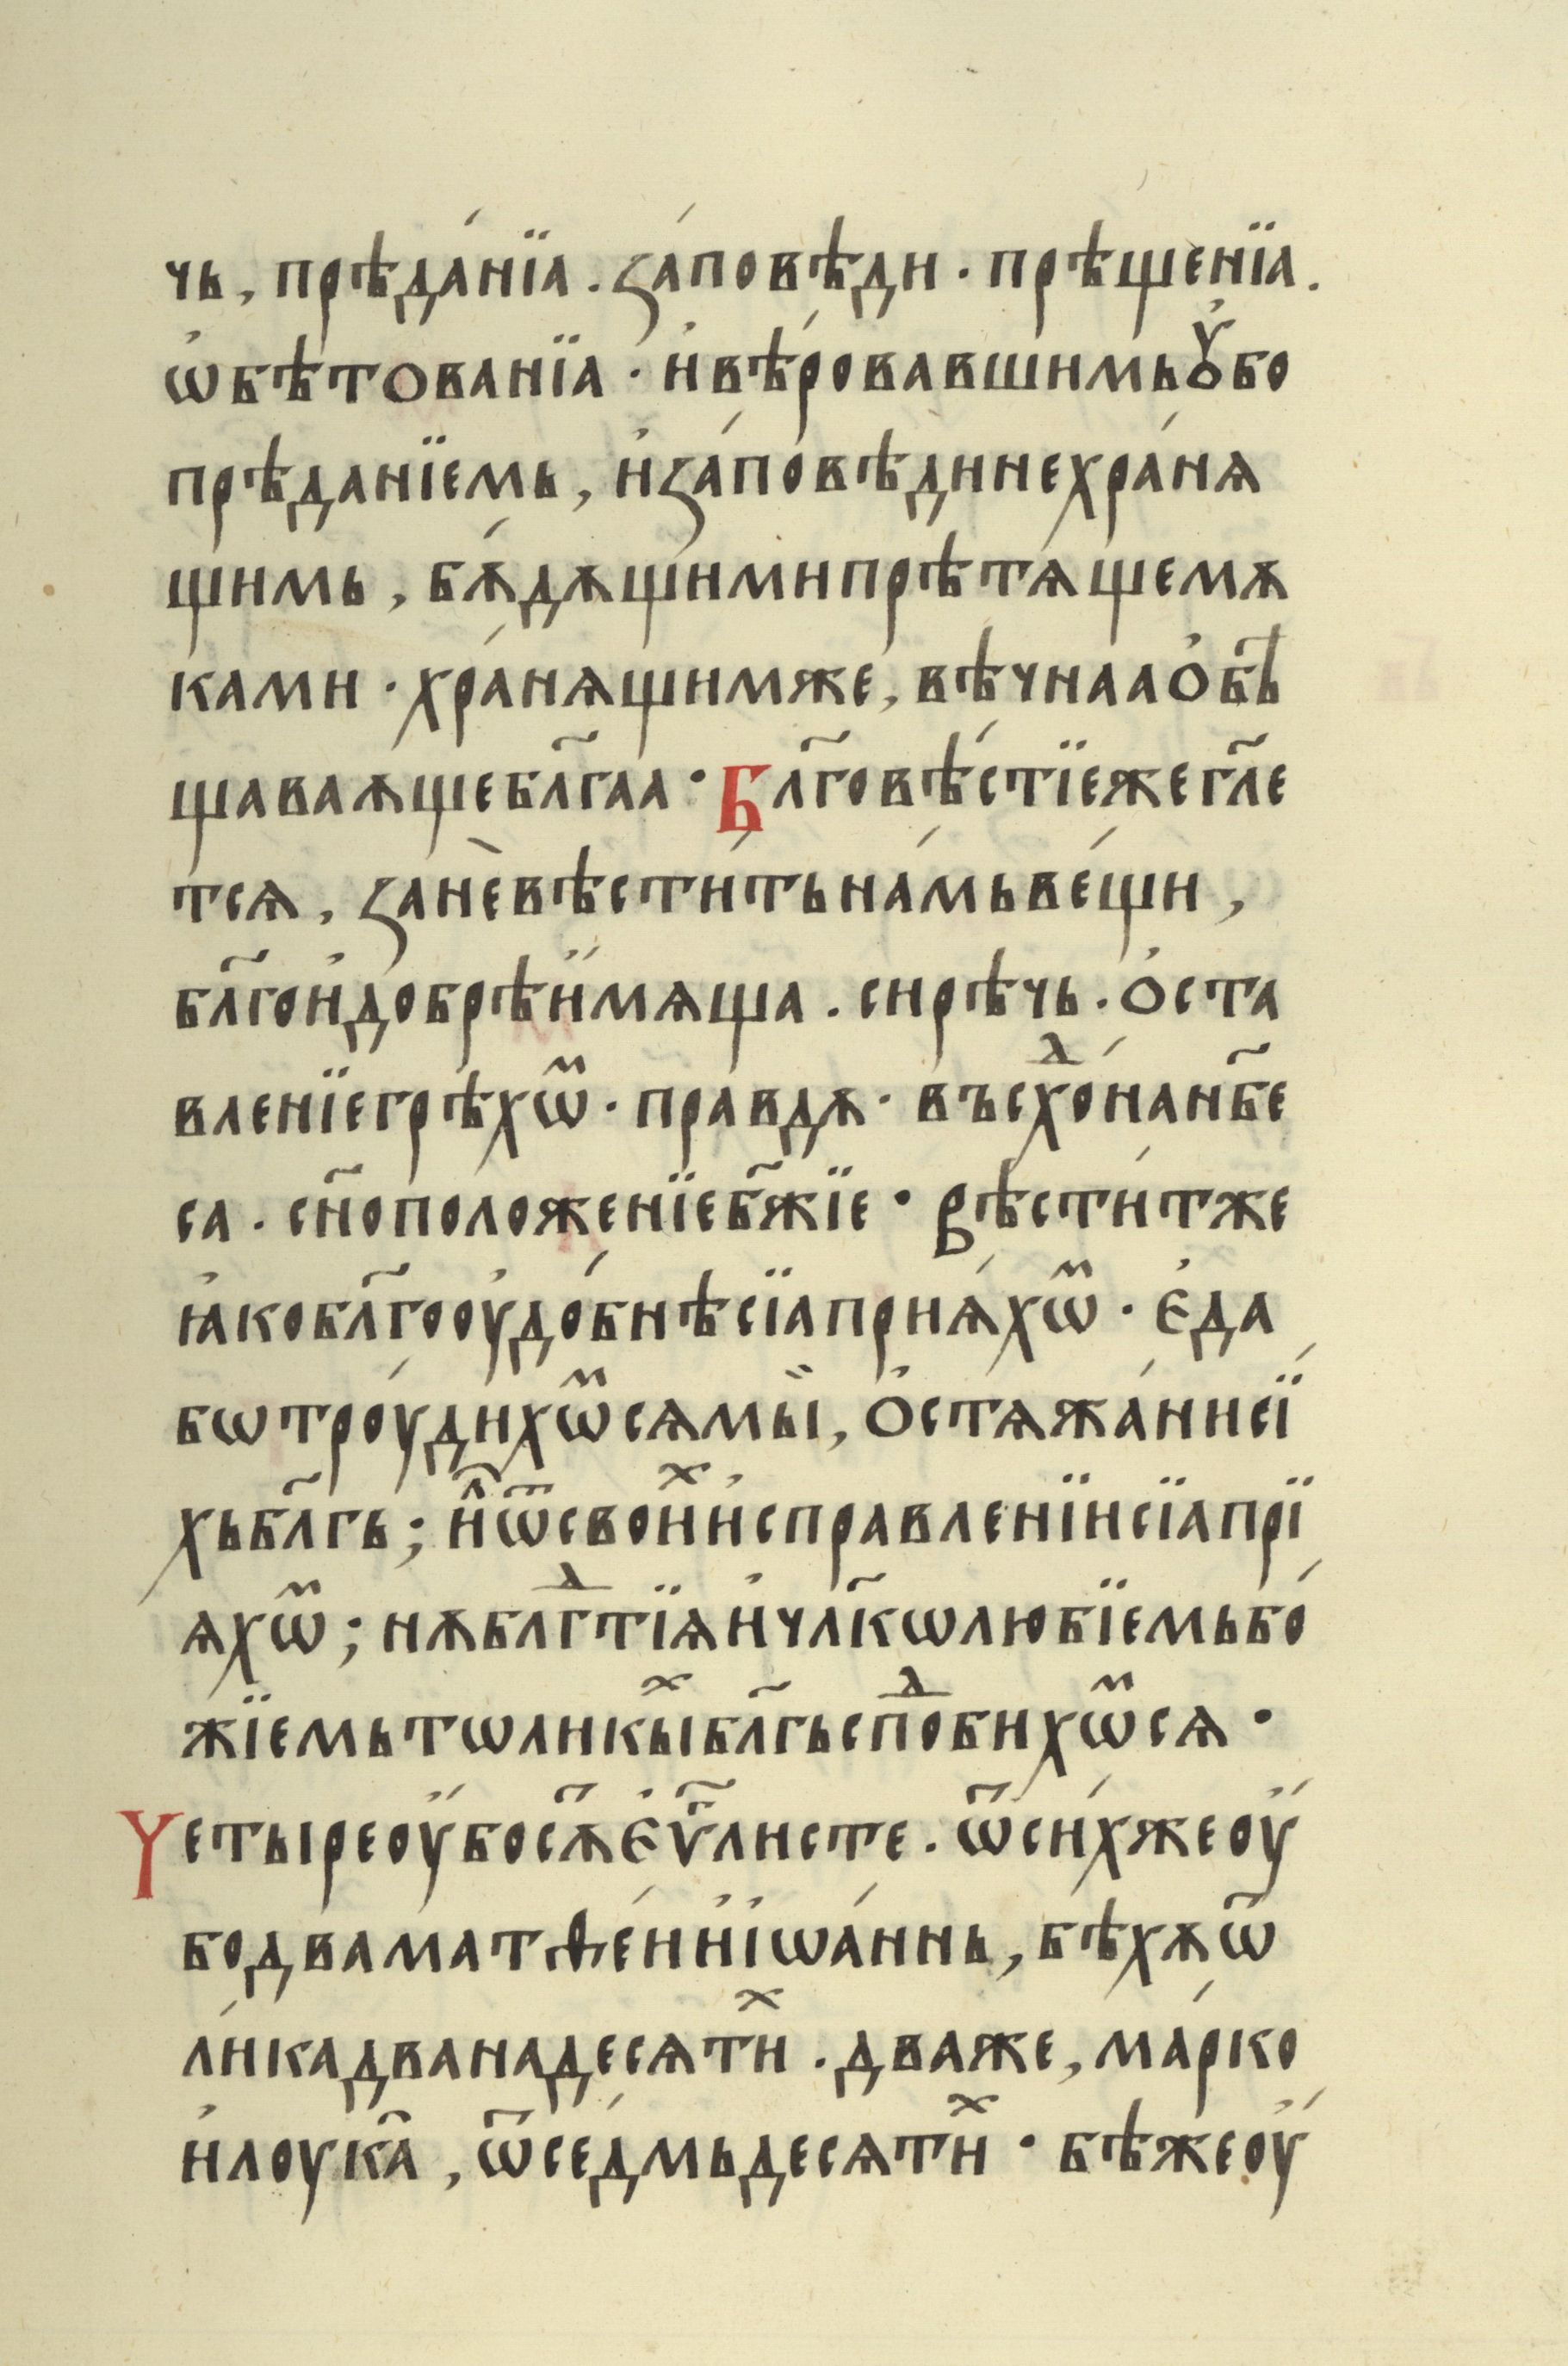 чь, прѣда́нїа. за́повѣди · прѣщенїа.
ѡ҆бѣтованїа · и҆вѣ́ровавшимьꙋ҆бо
прѣданїемь, и҆за́повѣдинехра́нѧ
щимь, бѫ́дѫщимипрѣтѧщемѫ
ками · хра́нѧщимже, вѣчнааѻ҆бѣ
щаваѫщебл҃гаа · Бл҃говѣ́стїежегл҃е
тсѧ, занѐвѣсти́тьна́мьве́щи,
бл҃гои҆добрѣи҆мѧща. сирѣчь. ѻ҆ста
вленїегрѣхѡⷨ · правдѫ · въсхоⷣ́нанб҃е
са. сн҃оположенїеб҃жїе · вѣсти́тже
ꙗ҆кобл҃гооу҆до́бнѣсїаприѧ́хѡⷨ · є҆да
бѡтроу́дихѡⷨсѧмы̏, ѻ҆стѧжа́ниисї
хьбл҃гь; и҆лѝѿсвоиⷯи҆справленїисїапрї
ѧхѡⷨ; нѫблгⷣтїѧи҆чл҃кѡлюбїемьбо́
жїемьтѡликыⷯбл҃гьспоⷣбихѡⷨсѧ ·
Четыреоу҆босѫ҃є҆ѵ҃листе. ѿси́хжеоу҆
бодваматѳе́ии҆і҆ѡа́ннь, бѣхѫѿ
ли́кадванадесѧтиⷯ. дваже, ма́рко
и҆лоука̑, ѿседмьдесѧтиⷯ · бѣжеоу҆